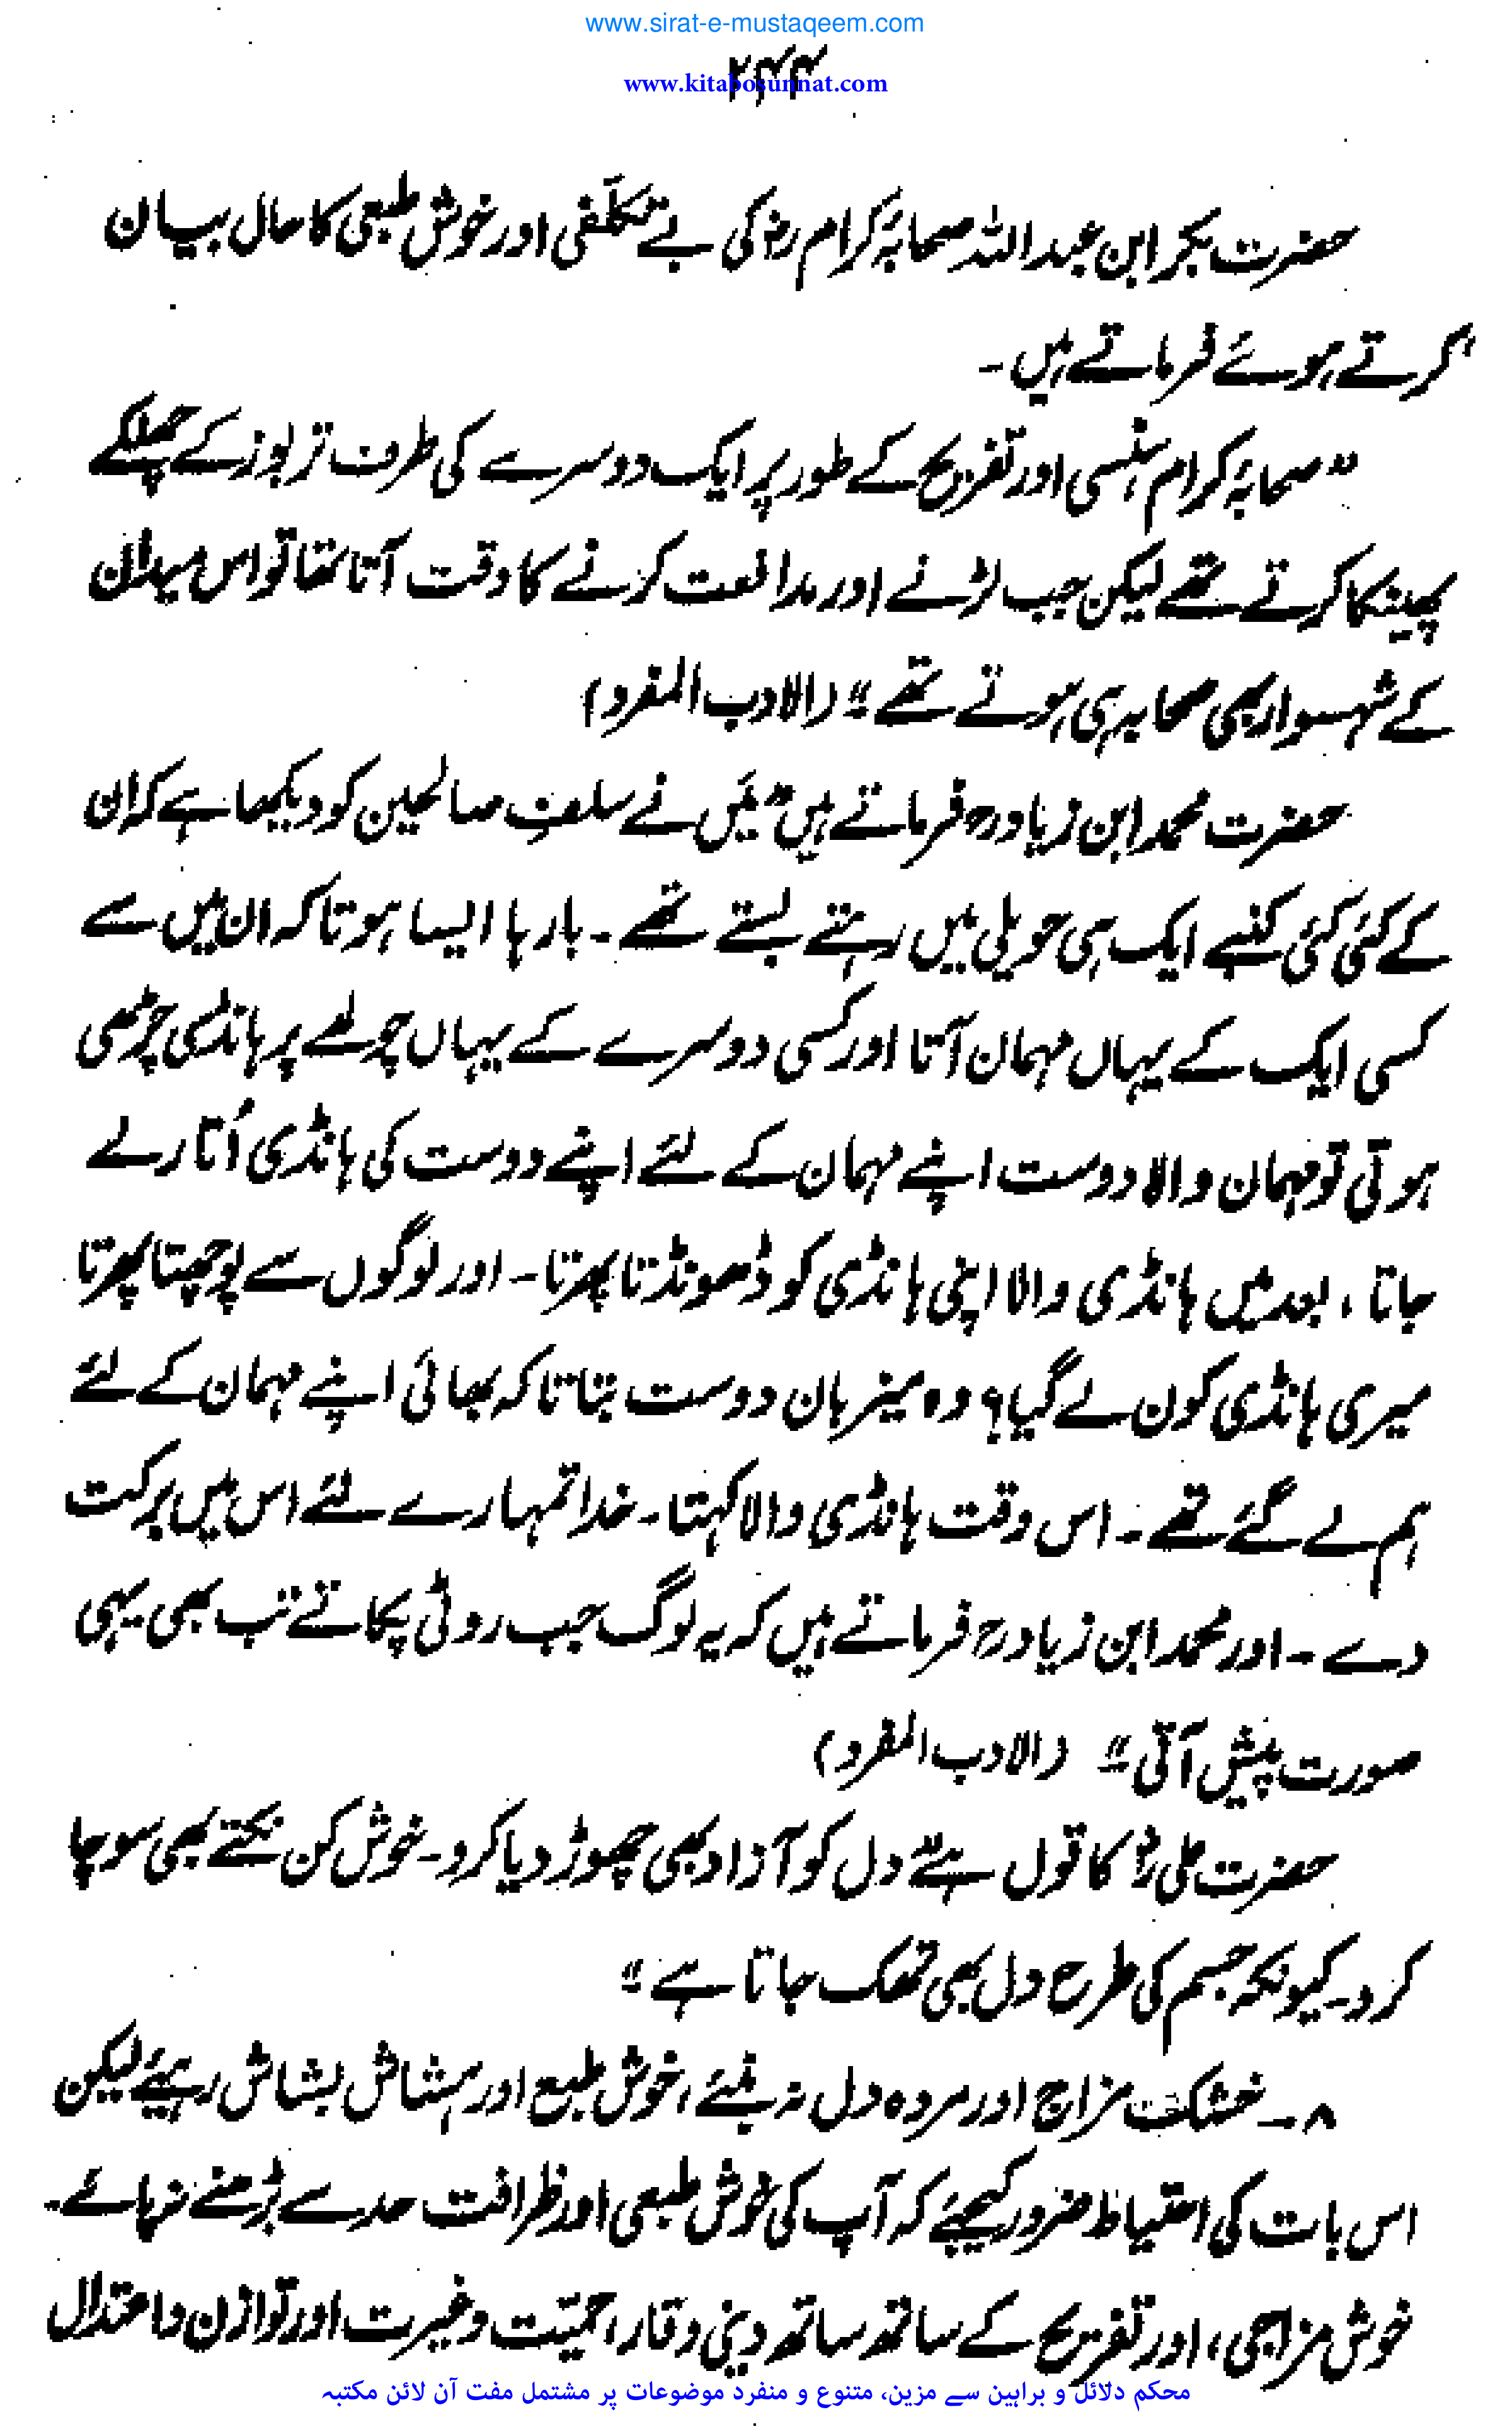 www.sirat-e-mustaqeem.com
۲۴۴
www.kitabosunnat.com
حضرت بکر ابن عبداللہ صحابۂ کرام رضؓ کی بے تکلّفی اور خوش طبعی کا حال بیان
کرتے ہوئے فرماتے ہیں۔
”صحابۂ کرام ہنسی اور تفریح کے طور پر ایک دوسرے کی طرف تربوز کے چھلکے
پھینکا کرتے تھے لیکن جب لڑنے اور مدافعت کرنے کا وقت آتا تھا تو اس میدان
کے شہسوار بھی صحابہ ہی ہوتے تھے۔“ (الادب المفرد)
حضرت محمد ابن زیادرح فرماتے ہیں ”میَں نے سلفِ صالحین کو دیکھا ہے کہ اُن
کے کئی کئی کنبے ایک ہی حویلی میں رہتے بستے تھے۔ بار ہا ایسا ہوتا کہ ان میں سے
کسی ایک کے یہاں مہمان آتا اور کسی دوسرے کے یہاں چولھے پر ہانڈی چڑھی
ہوتی تو مہمان والا دوست اپنے مہمان کے لئے اپنے دوست کی ہانڈی اُتار لے
جاتا، بعد میں ہانڈی والا اپنی ہانڈی کو ڈھونڈتا پھرتا۔ اور لوگوں سے پوچھتا پھرتا
میری ہانڈی کون لے گیا؟ وہ میزبان دوست بتاتا کہ بھائی اپنے مہمان کے لئے
ہم لے گئے تھے۔ اس وقت ہانڈی والا کہتا۔ خدا تمہارے لئے اس میں برکت
دے۔ اور محمد ابن زیادرح فرماتے ہیں کہ یہ لوگ جب روٹی پکاتے تب بھی یہی
صورت پیش آتی۔“ (الادب المفرد)
حضرت علی رضؓ کا قول ہے ”دل کو آزاد بھی چھوڑ دیا کرو۔ خوش کن نکتے بھی سوچا
کرو۔ کیونکہ جسم کی طرح دل بھی تھک جاتا ہے۔“
۸۔ خشک مزاج اور مردہ دل نہ بنئے، خوش طبع اور ہشاش بشاش رہیئے لیکن
اس بات کی احتیاط ضرور کیجئے کہ آپ کی خوش طبعی اور ظرافت حد سے بڑھنے نہ پائے۔
خوش مزاجی، اور تفریح کے ساتھ ساتھ دینی وقار، حمیّت و غیرت اور توازن و اعتدال
محکم دلائل و براہین سے مزین، متنوع و منفرد موضوعات پر مشتمل مفت آن لائن مکتبہ